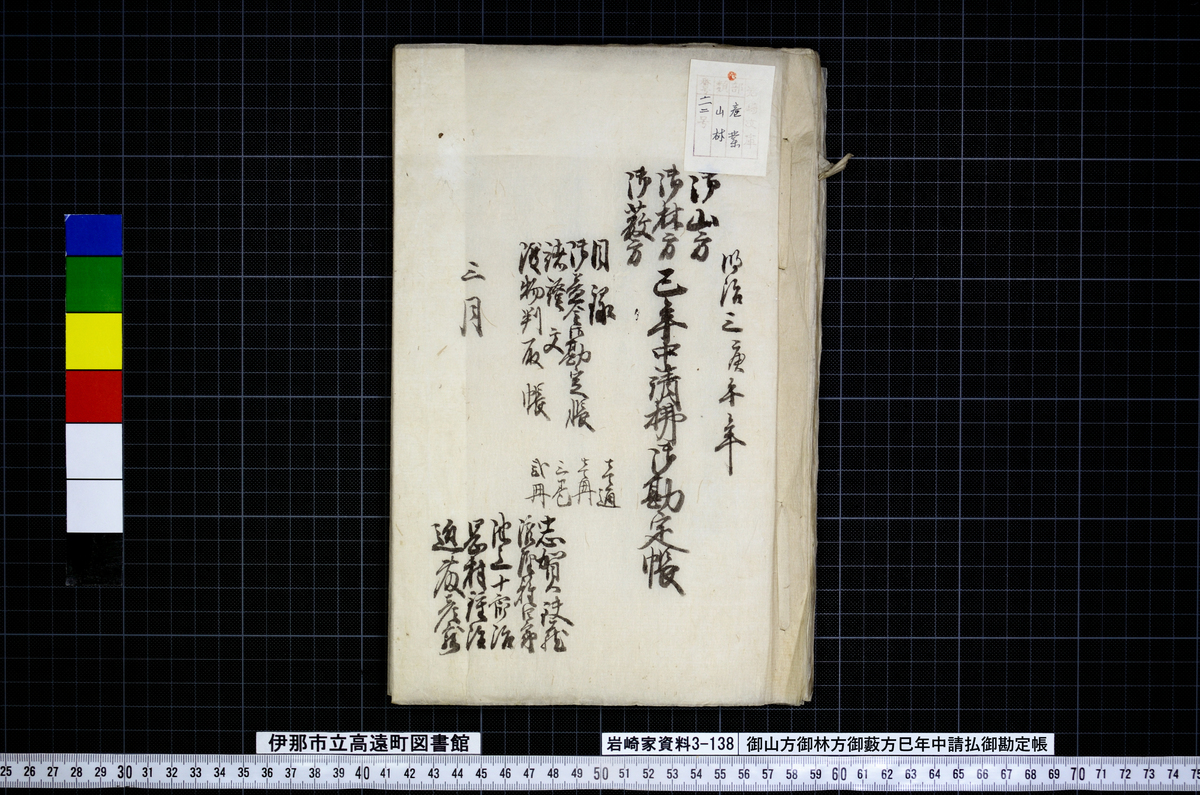 産業
山林
二二
明治三庚午年
御山方
御林方
御藪方
巳年中請払御勘定帳
目録 壱通
御益金御勘定帳 壱冊
諸證文 三巻
渡物判取帳 弐冊
三月
志賀
十郎治
伊那市立高遠町図書館
岩崎家資料3-138
御山方御林方御藪方巳年中請払御勘定帳
25 26 27 28 29 30 31 32 33 34 35 36 37 38 39 40 41 42 43 44 45 46 47 48 49 50 51 52 53 54 55 56 57 58 59 60 61 62 63 64 65 66 67 68 69 70 71 72 73 74 75